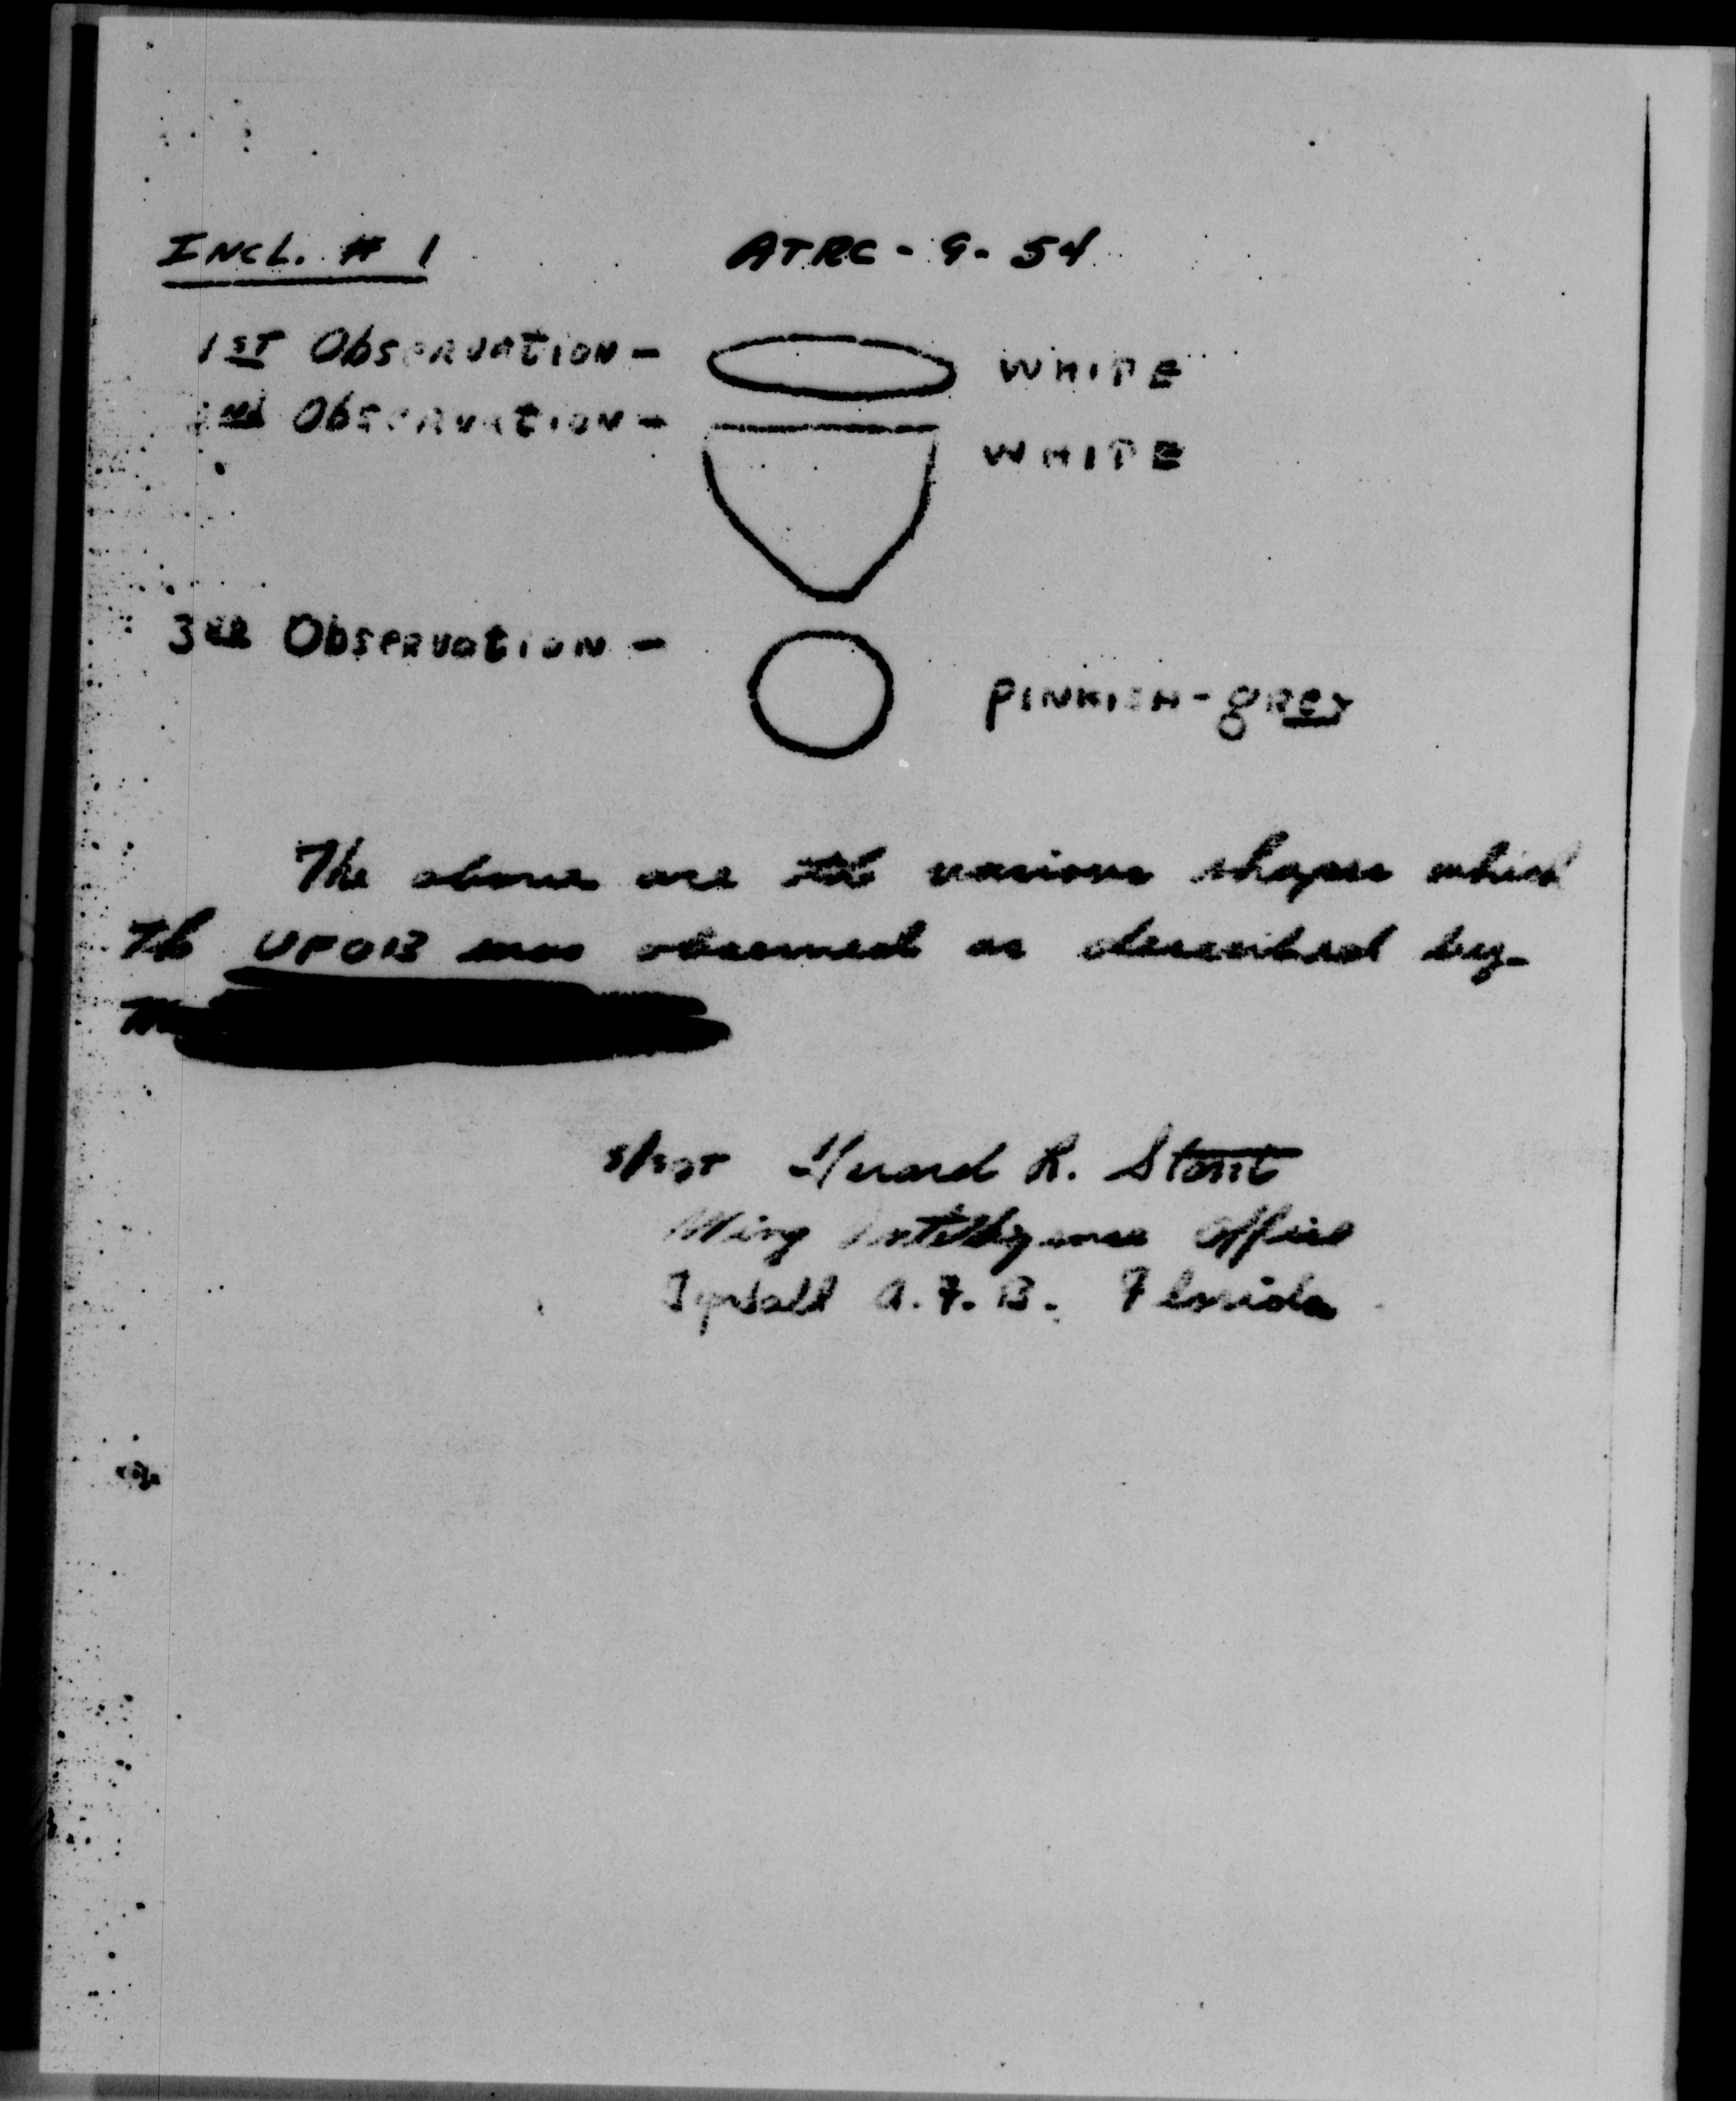 INCL. # 1 ATRC - 9 - 54
1ST Observation - WHITE
2nd Observation - WHITE
3RD Observation - PINKISH-GREY
The above are the various shapes which
The UFOB was observed as described by
S/SGT R. Stout
Wing Intelligence Office
Tyndall A.F.B. Florida